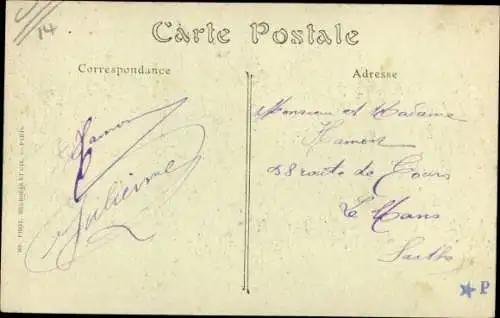 14
Carte Postale
Correspondance
Adresse
Hamon
Julienne
Monsieur et Madame
Hamon
58 route de Tours
Le Mans
Sarthe
P